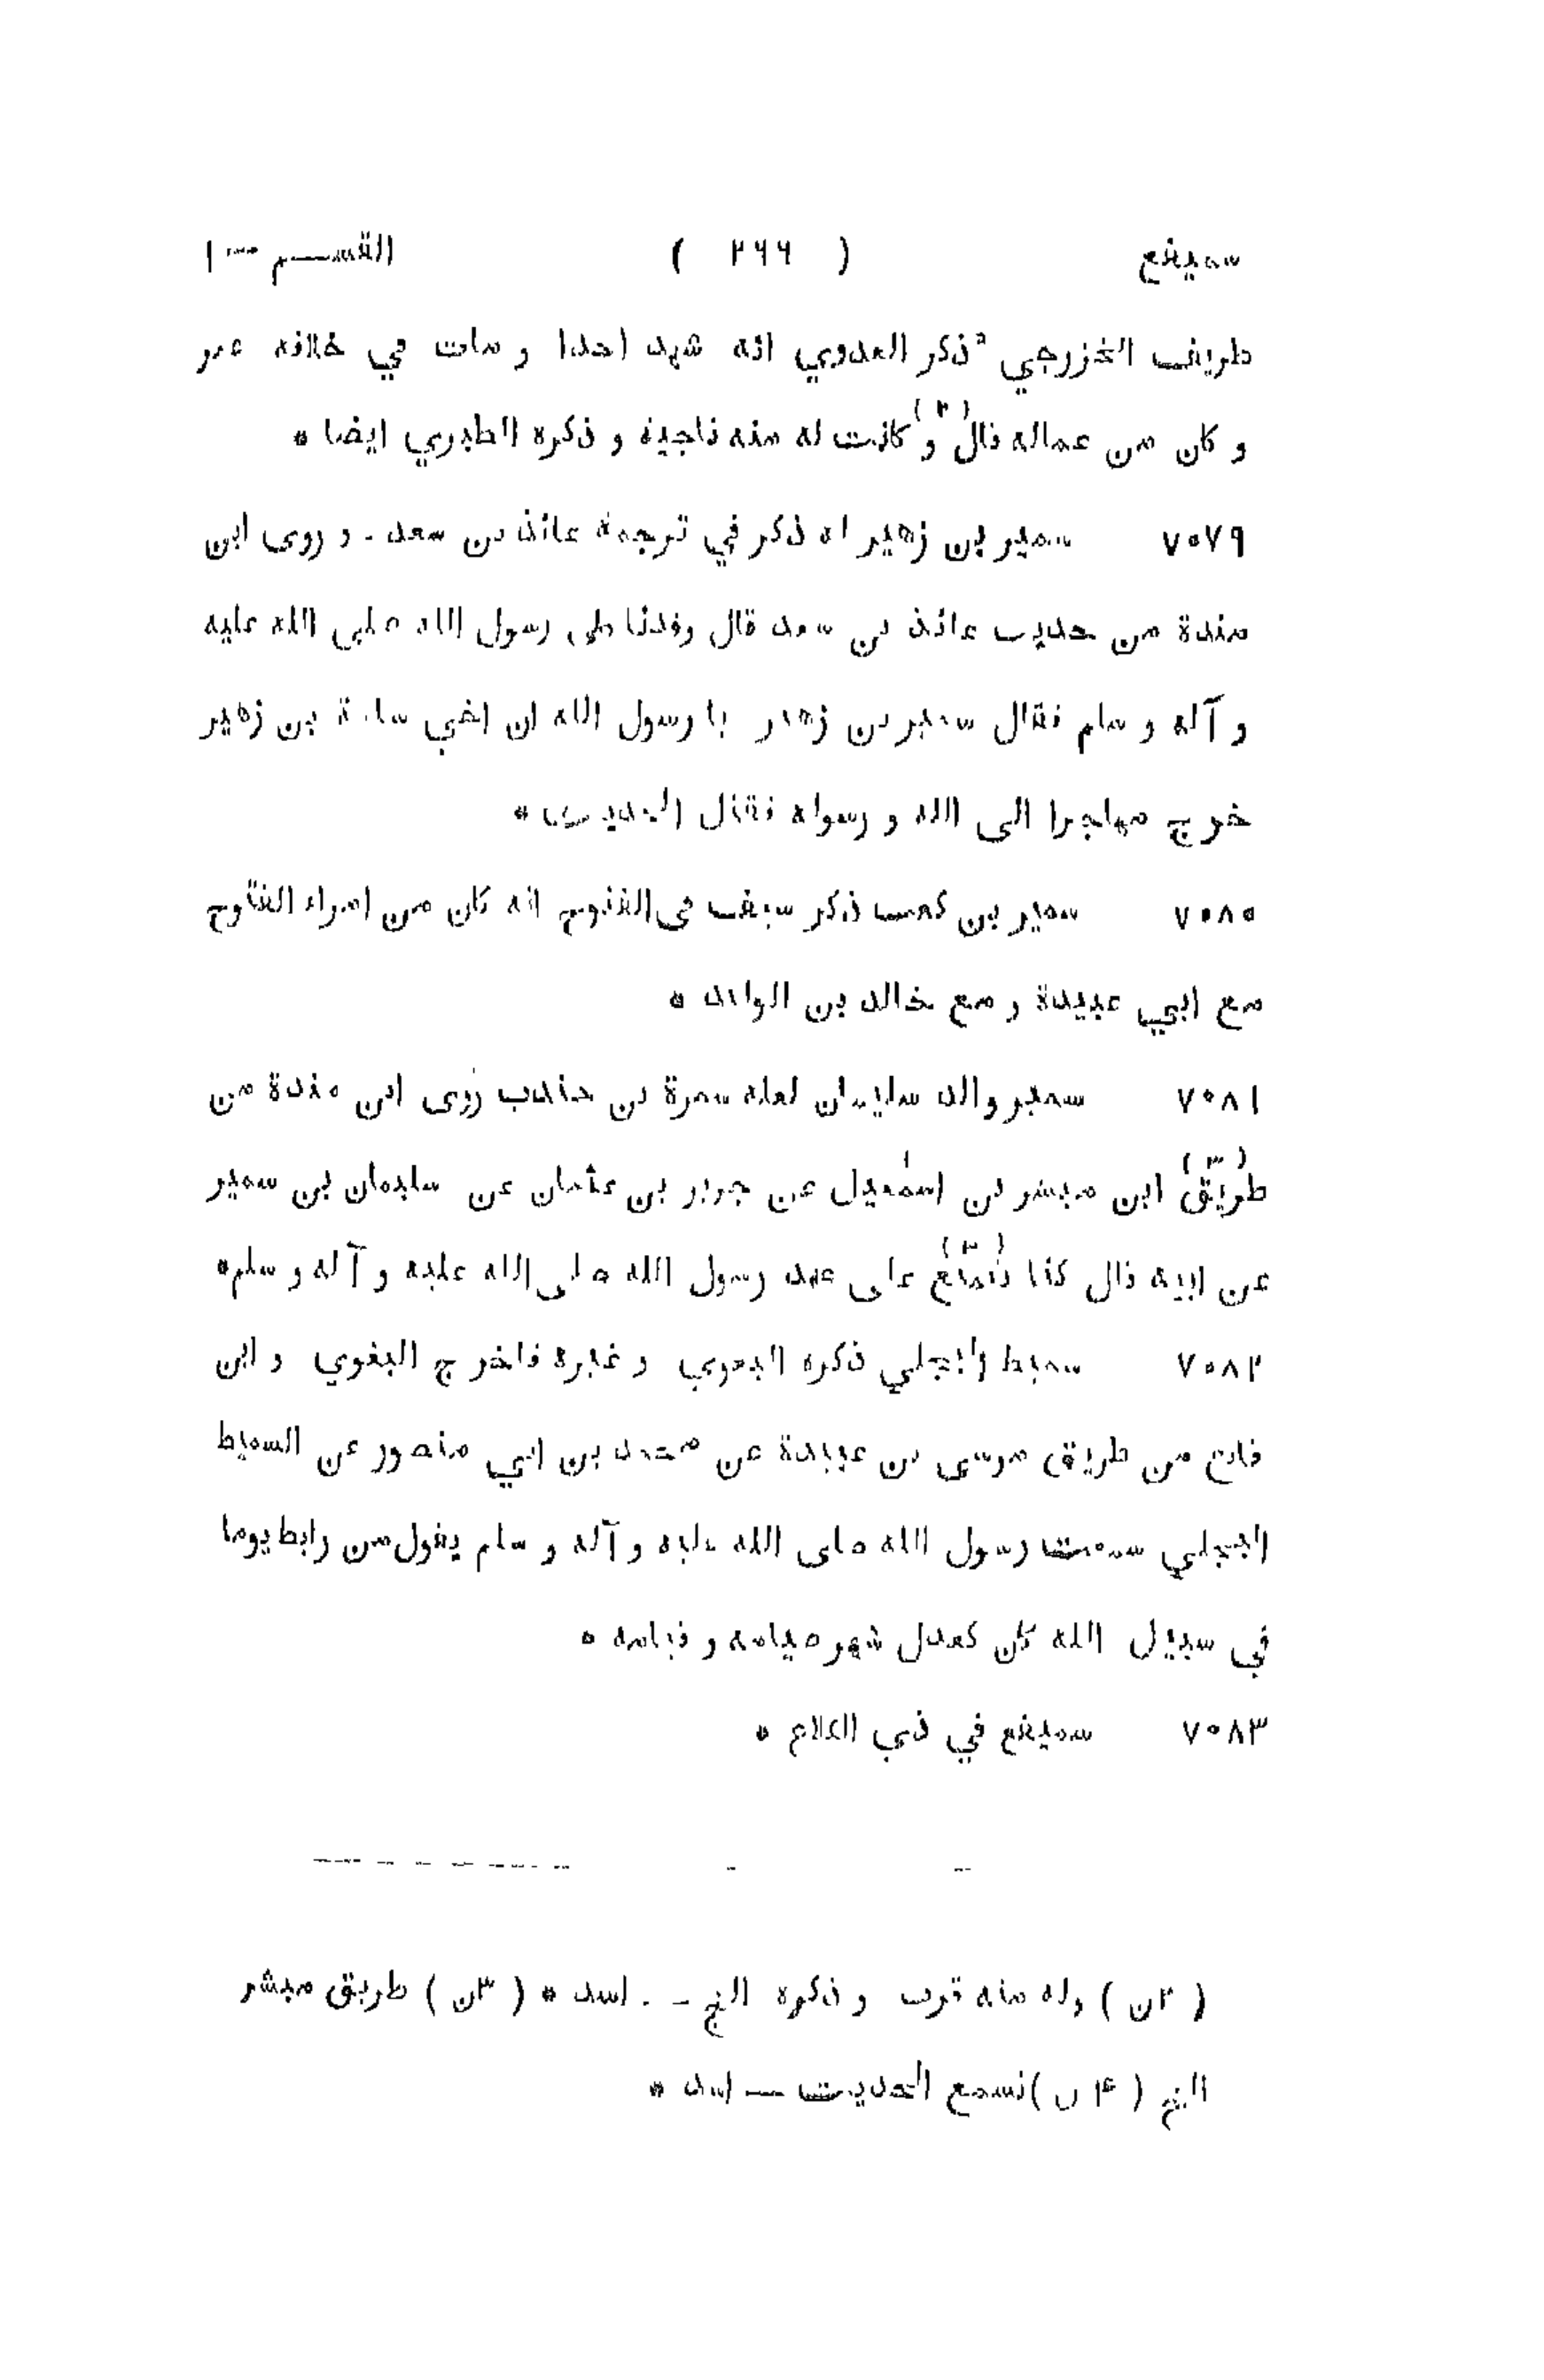 سميفع ( ٢٦٦ ) القسم — ١
طريف الخزرجي ذكر العدوي انه شهد احدا و مات في خلافة عمر
و كان من عماله قال (٢) و كانت له منه ناجية و ذكره الطبري ايضا *
٧٠٧٩ سمير بن زهير له ذكر في ترجمة عائذ بن سعد - و روى ابن
مندة من حديث عائذ بن سعد قال وفدنا على رسول الله صلى الله عليه
و آله و سلم فقال سمير بن زهير يا رسول الله ان اخي سلمة بن زهير
خرج مهاجرا الى الله و رسوله فقتل الحديث *
٧٠٨٠ سمير بن كعب ذكر سيف فى الفتوح انه كان من امراء الفتوح
مع ابي عبيدة و مع خالد بن الوليد *
٧٠٨١ سمير والد سليمان لعله سمرة بن جندب روى ابن مندة من
طريق (٣) ابن مبشر بن اسمعيل عن جرير بن عثمان عن سليمان بن سمير
عن ابيه قال كنا نتمتع (٣) على عهد رسول الله صلى الله عليه و آله و سلم *
٧٠٨٢ سميط البجلي ذكره البغوي و غيره فاخرج البغوي و ابن
قانع من طريق موسى بن عبيدة عن محمد بن ابي منصور عن السميط
البجلي سمعت رسول الله صلى الله عليه و آله و سلم يقول من رابط يوما
في سبيل الله كان كعدل شهر صيامه و قيامه *
٧٠٨٣ سميفع في ذي الكلاع *
( ٢ن ) وله منه قرب و ذكره الخ - اسد * ( ٣ن ) طريق مبشر
الخ ( ۴ ن ) نسمع الحديث — اسد *